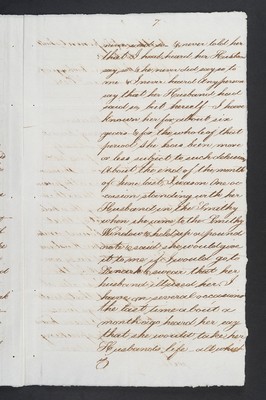 7
never said so & never told her
that I had heard her Husband
say so & he never did say so to
me & I never heard any person
say that her Husband had
said so but herself I have
known her for about six
years & for the whole of that
period she has been more
or less subject to such delusions
About the end of the month
of June last, I was on one oc-
casion standing with her
Husband in the Smithy
when she came to the Smithy
Window & held up a pound
note & said she would give
it to me if I would go to
& swear that her
husband illused her. I
have on several occasions
the last time about a
month ago heard her say
that she would take her
Husbands life all which